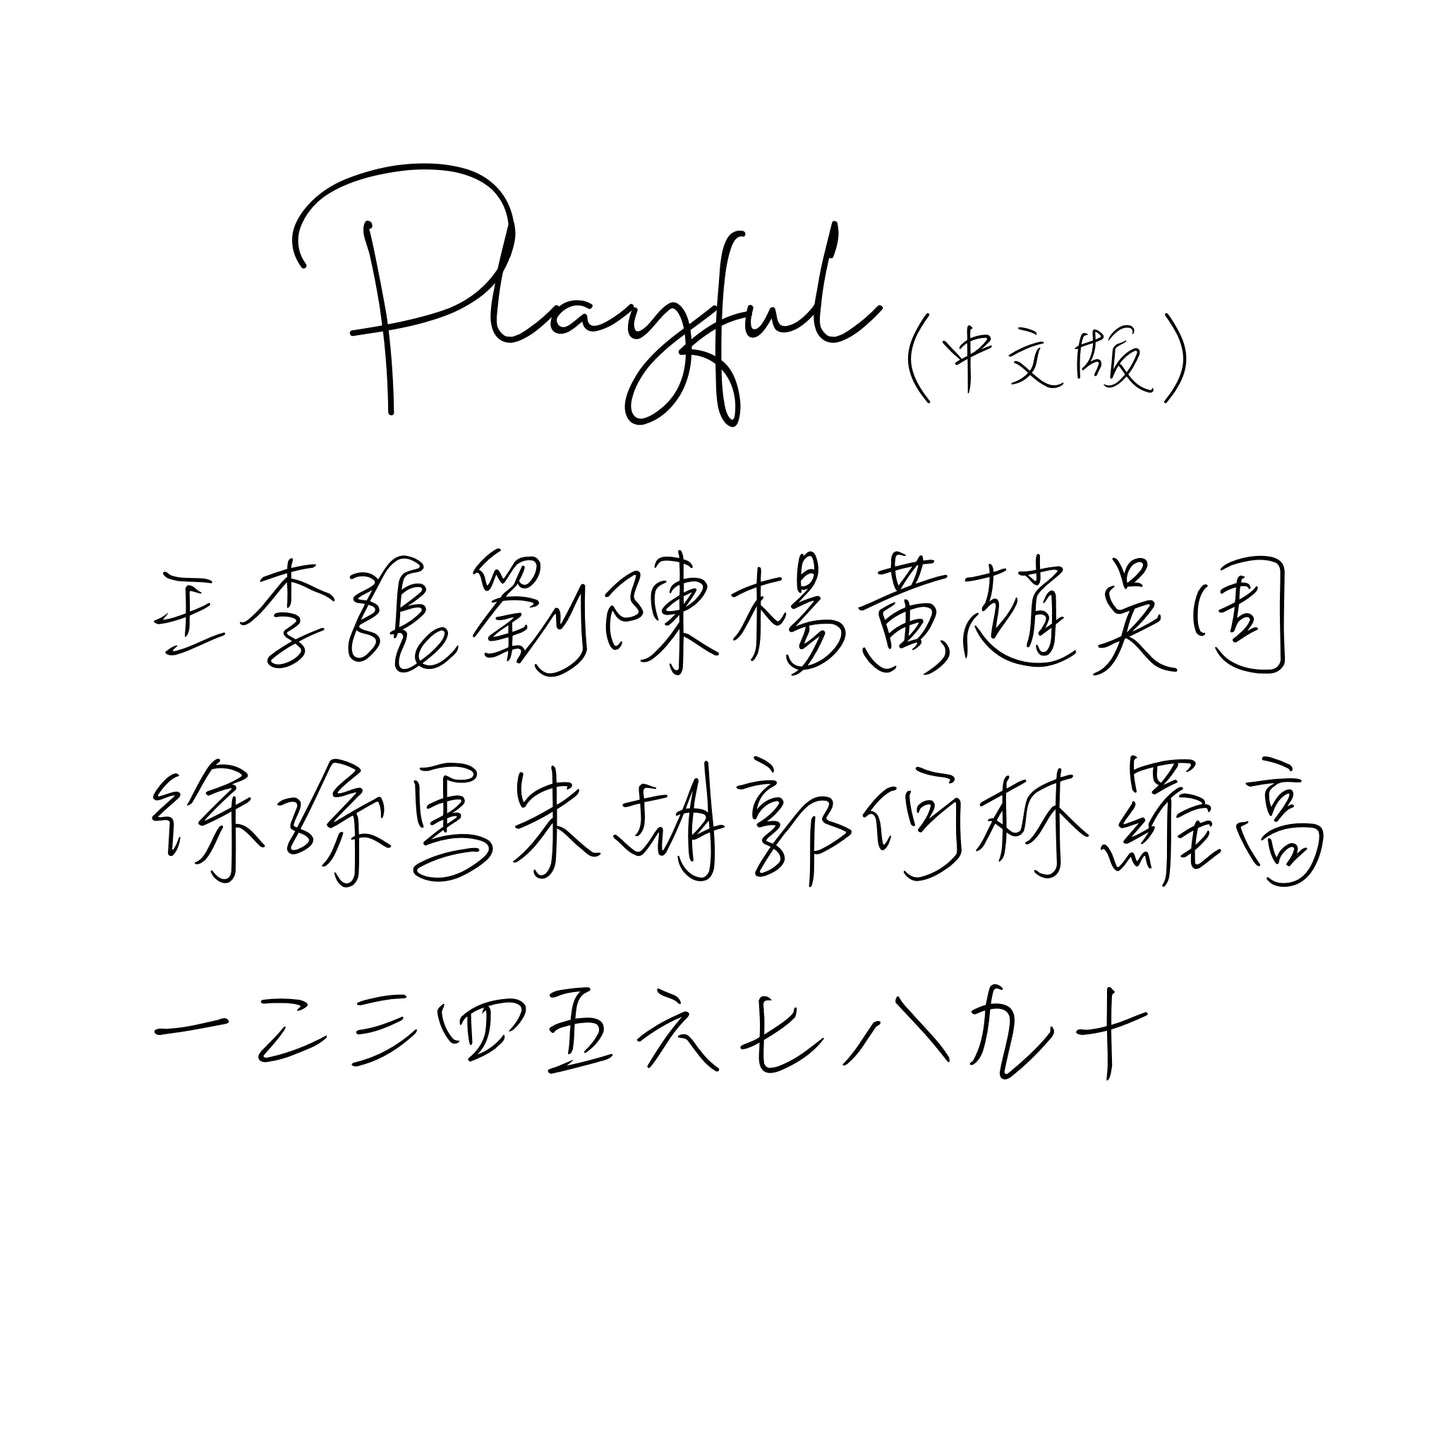 Playful（中文版）
王李張劉陳楊黃趙吳周
徐孫馬朱胡郭何林羅高
一二三四五六七八九十